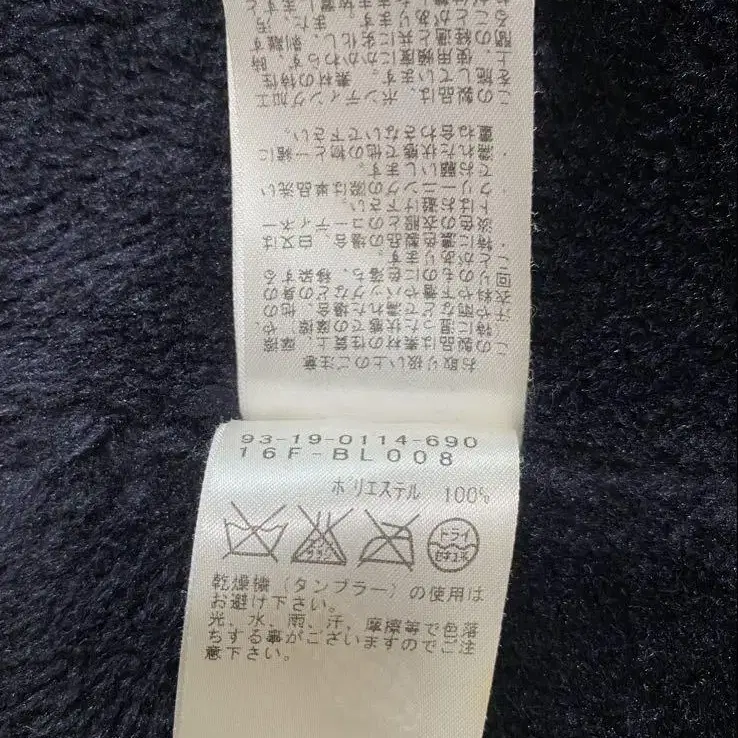 お取り扱い上のご注意
この製品は素材の性質上、摩擦
(特に湿った状態での摩擦)や、
汗や雨などで濡れた場合、他の
衣料や下着やバッグなどの身の
回りのものに色落ち、移染する
ことがあります。
・特に濃色製品の場合、白又は
淡色の衣服とのコーディネー
トはお避け下さい。
・クリーニングの際は単品洗い
でお願いします。
・濡れた状態で他の物と一緒に
重ね合わさないで下さい。
この製品は、ボンディング加工
を施しています。素材の特性
上、使用頻度にかかわらず、時
間の経過と共に劣化し、剥離す
ることがあります。また、汚
93-19-0114-690
16F-BL008
ポリエステル 100%
エンソ
サラシ
ドライ
セキユ系
乾燥機(タンブラー)の使用は
お避け下さい。
光、水、雨、汗、摩擦等で色落
ちする事がございますのでご注
意下さい。